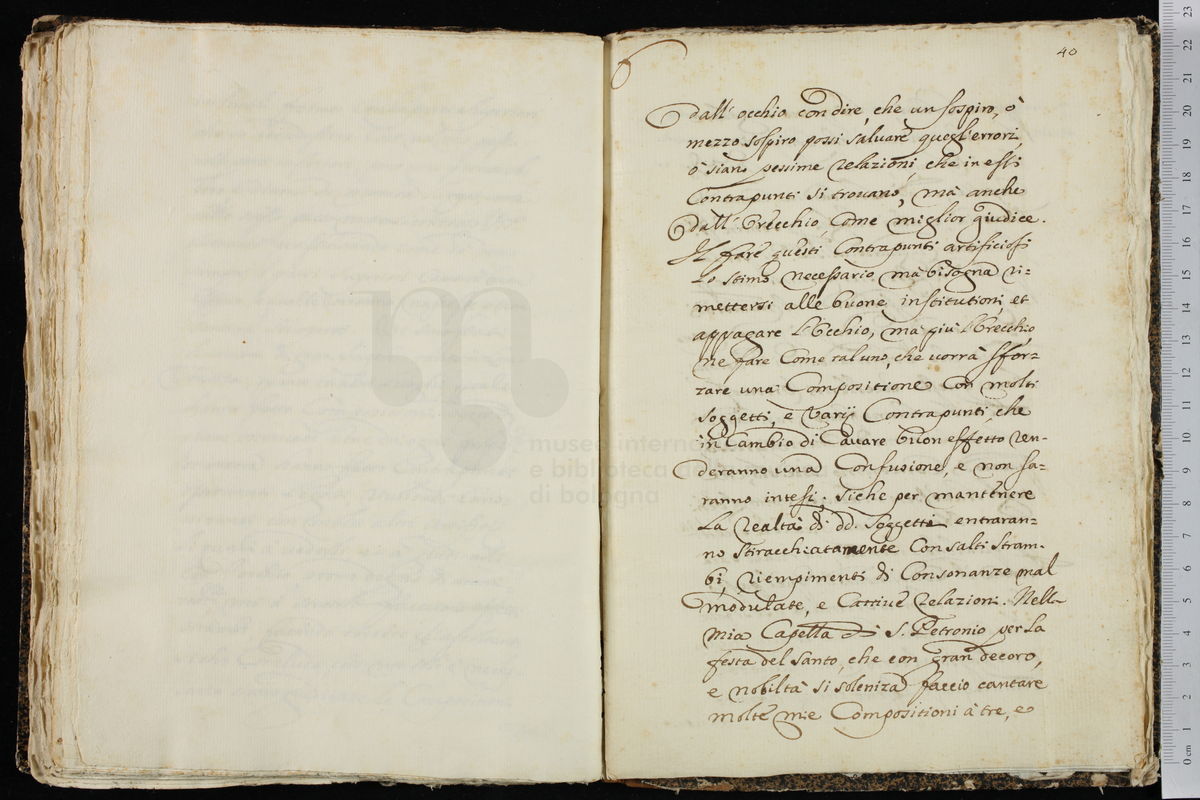 40
dall' occhio con dire, che un sospiro, ò
mezzo sospiro possi saluare quegl'errori,
ò siano pessime relazioni, che in essi
Contrapunti si trouano, mà anche
dall' Orecchio, Come miglior giudice.
Il fare questi Contrapunti artificiosi
Lo stimo necessario, mà bisogna ri=
mettersi alle buone institutioni, et
appagare l'Occhio, ma più l'Orecchio
ne fare Come taluno, che uorrà sfor=
zare una Compositione Con molti
soggetti, e Varij Contrapunti, che
in Cambio di Cauare buon effetto ren-
deranno una Confusione, e non sa-
ranno intesi; siche per mantenere
La realtà di dd. Soggetti entraran=
no stiracchiatamente Con salti stram-
bi, riempimenti di Consonanze mal
modulate, e Cattiue relazioni. Nella
mia Capella di S. Petronio per La
festa del Santo, che con gran decoro,
e nobiltà si soleniza faccio cantare
molte mie Compositioni à tre, e
museo interna
e biblioteca de
di bologna
0 cm 1 2 3 4 5 6 7 8 9 10 11 12 13 14 15 16 17 18 19 20 21 22 23